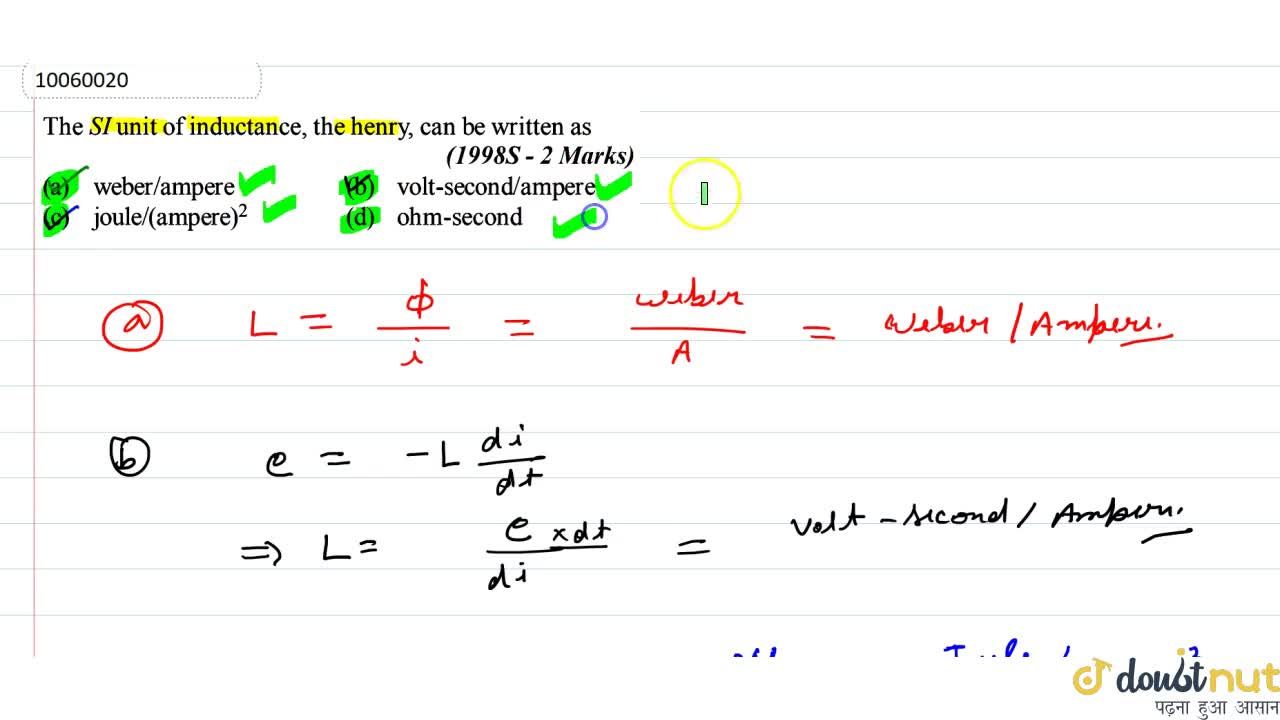 10060020
The SI unit of inductance, the henry, can be written as
(1998S - 2 Marks)
(a) weber/ampere (b) volt-second/ampere
(c) joule/(ampere)² (d) ohm-second
(a) L = ϕ/i = weber/A = Weber / Ampere.
(b) e = -L di/dt
⇒ L = e x dt/di = Volt - second / Ampere.
doubtnut
पढ़ना हुआ आसान